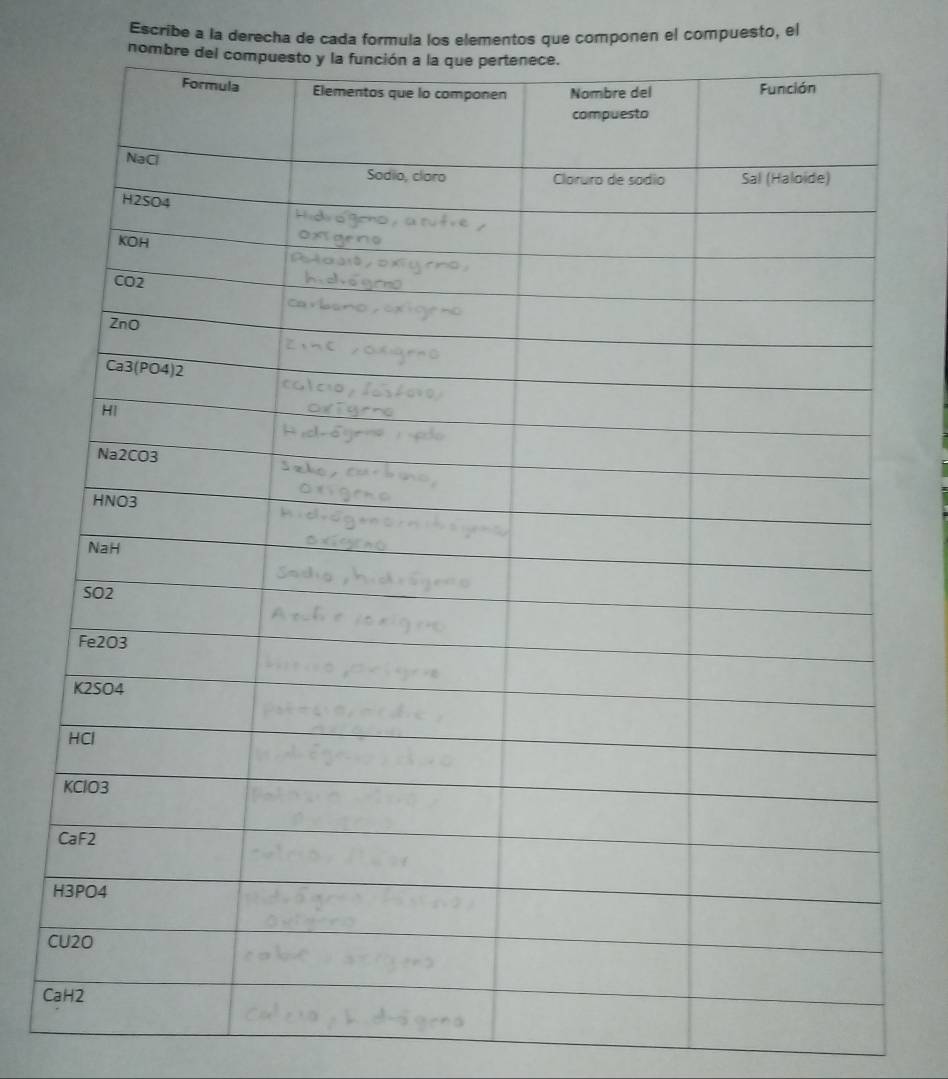 Escribe a la derecha de cada formula los elementos que componen el compuesto, el
nombre del compuesto y la función a la que pertenece.
Formula Elementos que lo componen Nombre del compuesto Función
NaCl Sodio, cloro Cloruro de sodio Sal (Haloide)
H2SO4
Hidrógeno, azufre,
oxígeno
KOH
Potasio, oxígeno,
hidrógeno
CO2
carbono, oxígeno
ZnO
Zinc, oxígeno
Ca3(PO4)2
calcio, fósforo,
oxígeno
HI
Hidrógeno,
Na2CO3
carbono,
Oxígeno
HNO3
hidrógeno, nitrogeno,
oxígeno
NaH
Sodio, hidrógeno
SO2
Azufre, oxígeno
Fe2O3
oxígeno
K2SO4
potasio,
HCl
hidrógeno, cloro
KClO3
Potasio, cloro,
CaF2
calcio, flúor
H3PO4
hidrógeno, fósforo,
Oxígeno
CU2O
cobre, oxígeno
CaH2
Calcio, hidrógeno